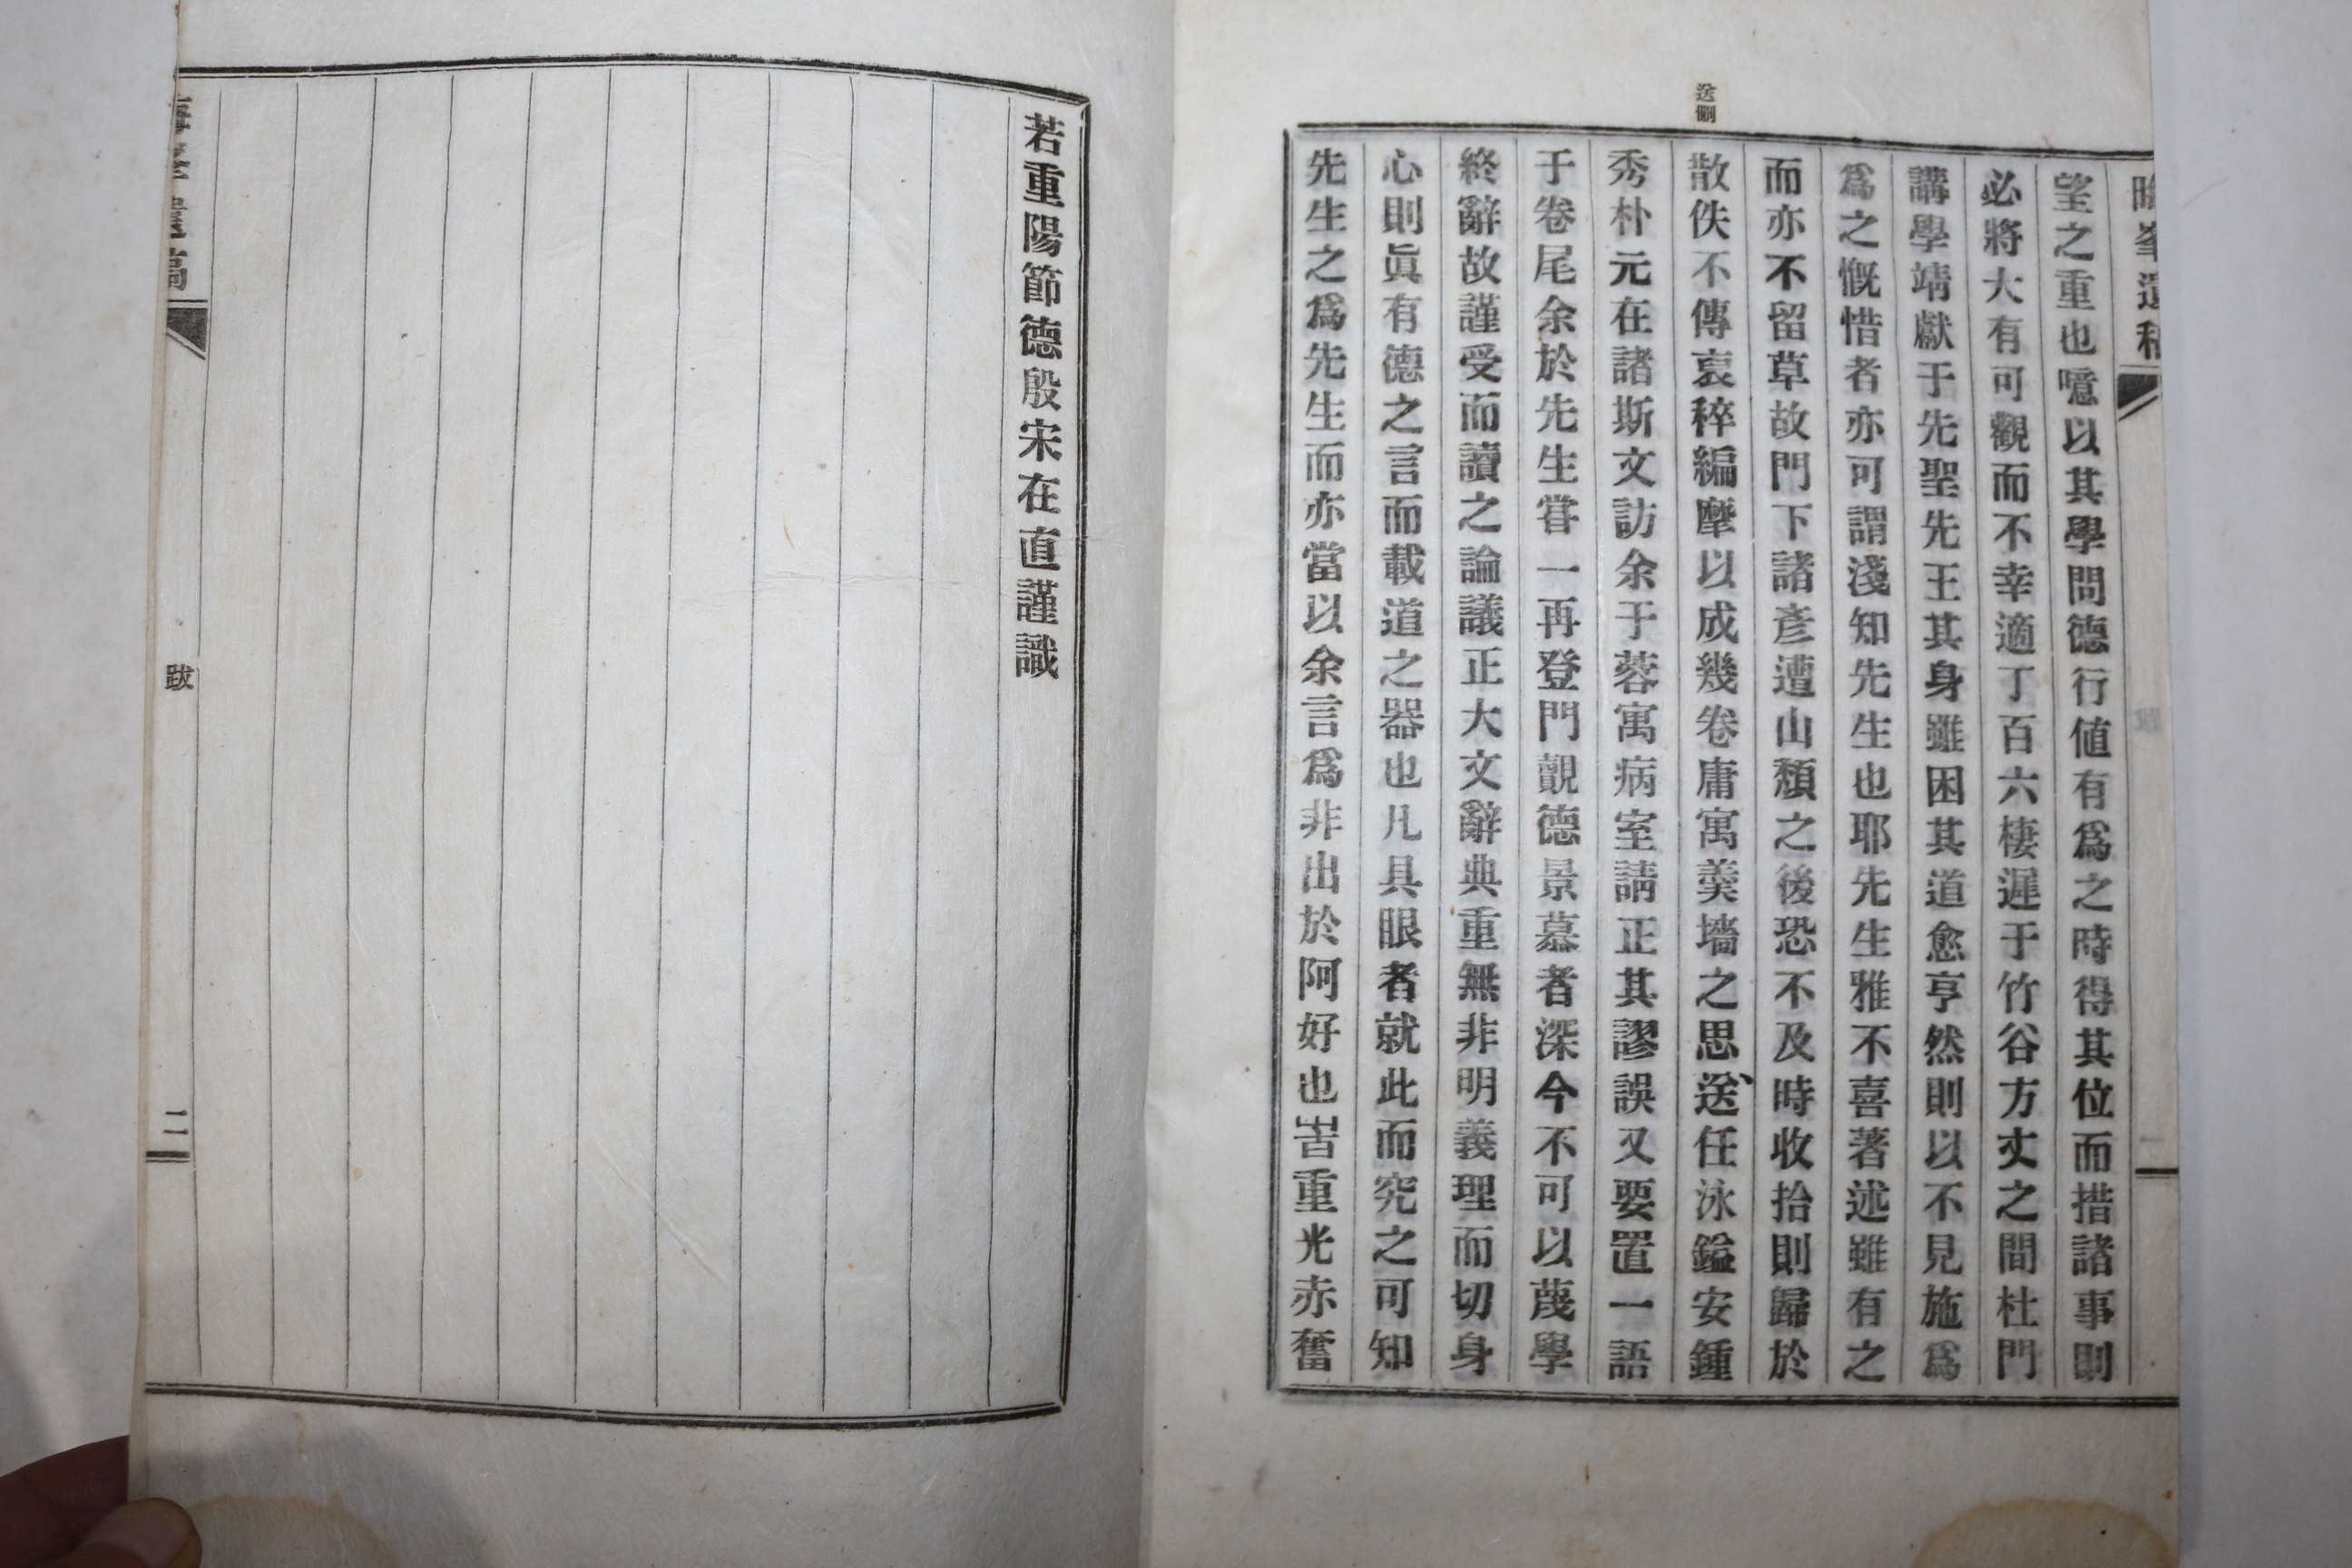 峯遺
望之重也噫以其學問德行値有爲之時得其位而措諸事則
必將大有可觀而不幸適丁百六棲遲于竹谷方丈之間杜門
講學靖獻于先聖先王其身雖困其道愈亨然則以不見施爲
爲之慨惜者亦可謂淺知先生也耶先生雅不喜著述雖有之
而亦不留草故門下諸彥遭山頹之後恐不及時收拾則歸於
送刪
散佚不傳裒稡編摩以成幾卷庸寓羹墻之思送任泳鎰安鍾
秀朴元在諸斯文訪余于蓉寓病室請正其謬誤又要置一語
于卷尾余於先生甞一再登門覿德景慕者深今不可以蔑學
終辭故謹受而讀之論議正大文辭典重無非明義理而切身
心則眞有德之言而載道之器也凡具眼者就此而究之可知
先生之爲先生而亦當以余言爲非出於阿好也旹重光赤奮
若重陽節德殷宋在直謹識
遺稿
跋
二